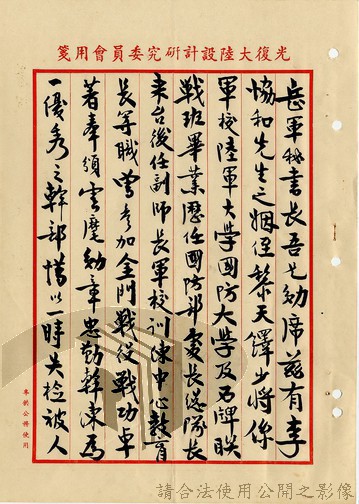 光復大陸設計研究委員會用箋
岳軍秘書長吾兄勛席茲有李
協和先生之姻侄黎天鐸少將係
軍校陸軍大學國防大學及石牌聯
戰班畢業歷任國防部處長總隊長
來台後任副師長軍校訓練中心教育
長等職曾參加金門戰役戰功卓
著奉頒雲麾勛章忠勤幹練為
一優秀之幹部惜以一時失檢被人
奉鈞公務使用
請合法使用公開之影像